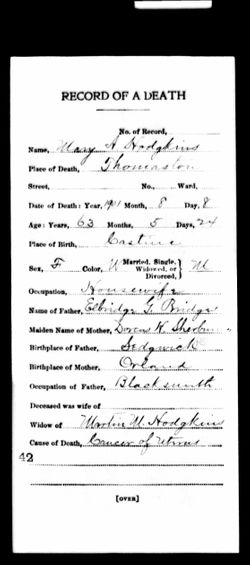 RECORD OF A DEATH
No. of Record,
Name, Mary A Hodgkins
Place of Death, Thomaston
Street, No., Ward,
Date of Death: Year, 1941 Month, 8 Day, 8
Age: Years, 63 Months, 5 Days, 24
Place of Birth, Castine
Sex, F Color, W Married, Single, Widowed, or Divorced, M
Occupation, Housewife
Name of Father, Elbridge G. Bridges
Maiden Name of Mother, Dorcas K.
Birthplace of Father, Sedgwick
Birthplace of Mother, Orland
Occupation of Father, Blacksmith
Deceased was wife of
Widow of Martin U. Hodgkins
Cause of Death, Cancer of Uterus
42
[OVER]